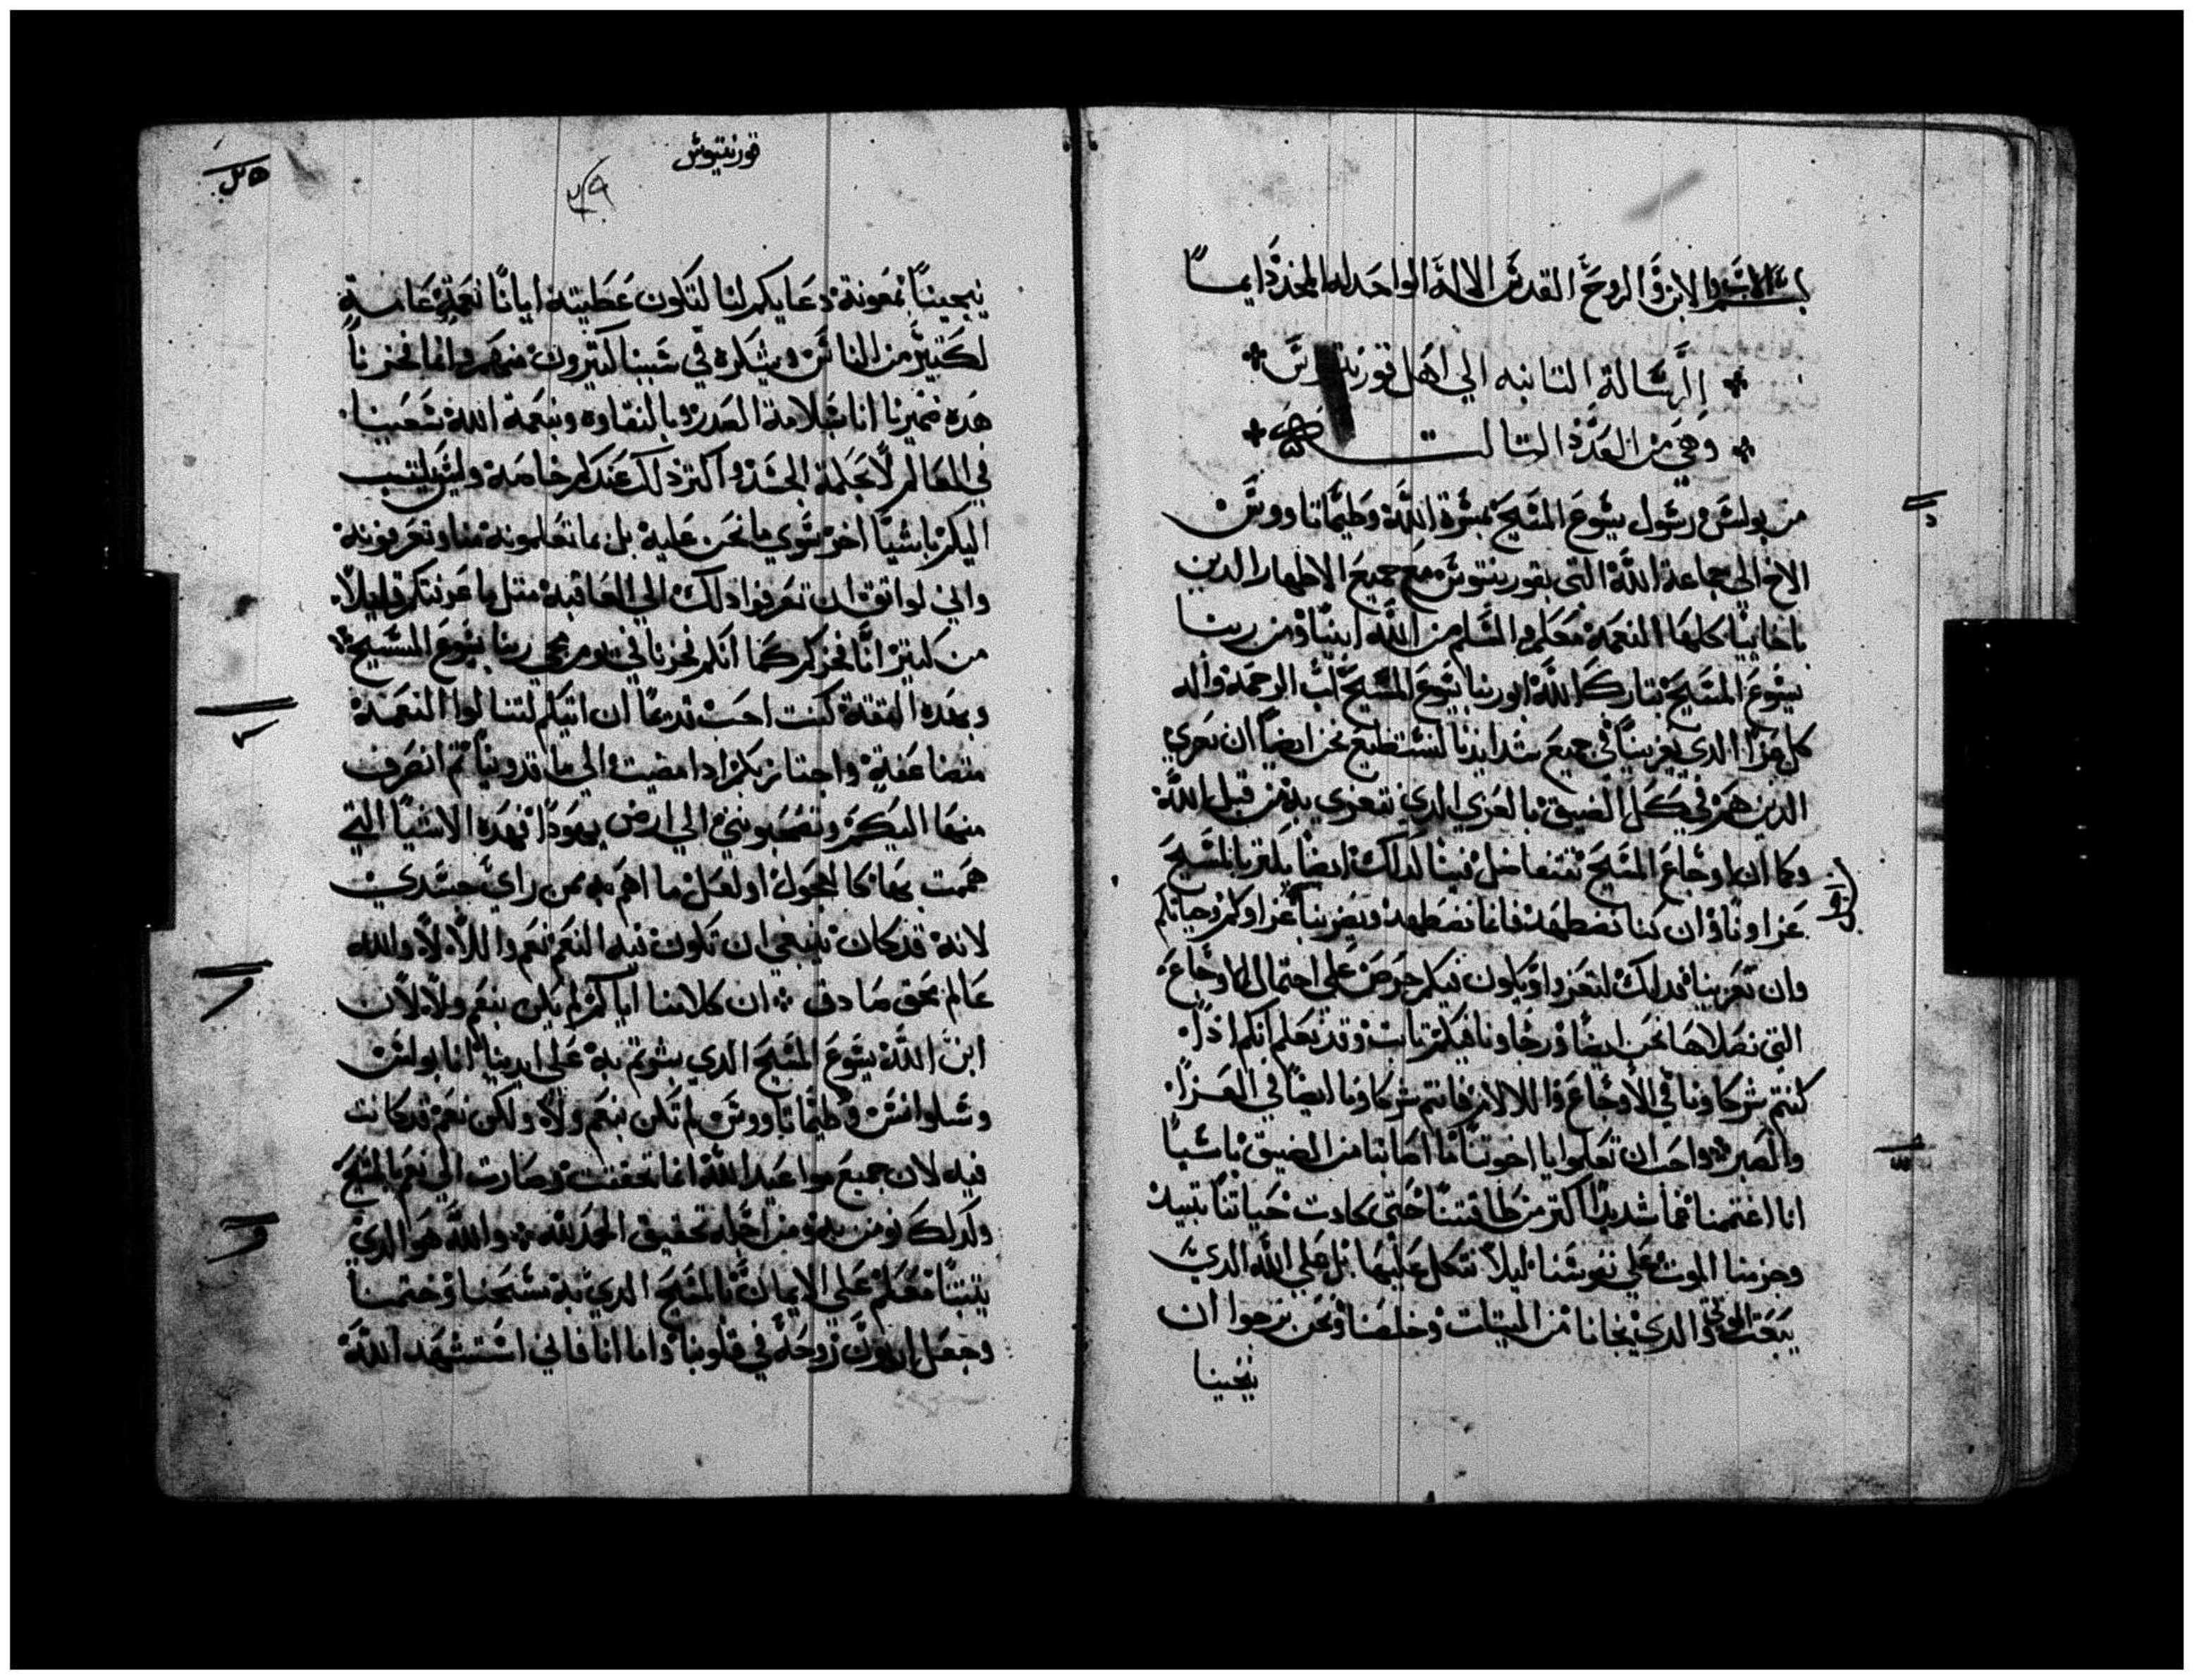 بسم الاب والابن والروح القدس الاله الواحد له المجد دايما
الرسالة التانيه الي اهل قورنتيوس
وهي من العدد التالت
من بولس رسول يسوع المسيح بمسرة الله وطيماتاووس
الاخ الي جماعة الله التي بقورنتوس مع جميع الاطهار الدين
باخاييا كلها النعمة معكم والسلم من الله ابينا ومن ربنا
يسوع المسيح تبارك الله ابو ربنا يسوع المسيح اب الرحمة واله
كل عزا الدي يعزينا في جميع شدايدنا لنستطيع نحن ايضا ان نعزي
الدين هم في كل الضيق بالعزي الدي نتعزي به من قبل الله
وكما ان اوجاع المسيح تتفاضل فينا لدلك ايضا يكتر بالمسيح
عزاونا وان كنا نضطهد فانما نضطهد ويضر بنا عزاوكم وحياتكم
وان تعزينا فدلك لتعزوا ويكون فيكم حرص علي احتمال الاوجاع
التي نصلاها نحن ايضا ورجاونا فيكم تابت وقد نعلم انكم اذ
كنتم شركاونا في الاوجاع والالام فانتم شركاونا ايضا في العزا
والصبر واحب ان تعلموا يا اخوتنا ما اصابنا من الضيق باسيا
انا اغتممنا غما شديدا اكتر من طاقتنا حتي كادت حياتنا تبيد
وجزمنا الموت علي نفوسنا ليلا نتكل عليها بل علي الله الدي
يبعت الموتي والدي نجانا من الميتات وخلصنا ونحن نرجوا ان
ينجينا
قورنتيوس
ينجينا بمعونة دعايكم لنا لتكون عطيته ايانا نعمة عامة
لكتير من الناس ويشكره في سببنا كتيرون منهم وانما فخرنا
هده ضميرنا انا بسلامة الصدر وبالنقاوه وبنعمة الله سعينا
في العالم لا بحكمة الجسد واكتر دلك عندكم خاصة وليس يكتب
اليكم باشيا اخر سوي ما نحن عليه بل بما تعلمونه منا وتعرفونه
واني لواتق ان تعرفوا دلك الي العاقبة متل ما عرفتم قليلا
من كتير انا فخركم كما انكم فخرنا في يوم مجي ربنا يسوع المسيح
وبهده التقة كنت احب قديما ان اتيكم لتنالوا النعمة
متضاعفة واجتاز بكم ادا مضيت الي ماقدونيا تم انصرف
منها اليكم وتصحبونني الي ارض يهودا فهده الاشيا التي
هممت بها كالعجول او لعل ما اهم به من راي جسدي
لانه قد كان ينبغي ان تكون فيه النعم نعم واللا لا والله
عالم بحق صادق ان كلامنا اياكم لم يكن بنعم ولا لان
ابن الله يسوع المسيح الدي بشرتم به علي ايدينا انا بولس
وسلوانس وطيماتاووس لم تكن بنعم ولا ولكن نعم قد كانت
فيه لان جميع مواعيد الله انما تحققت وصارت الي نعم بالمسيح
ولدلك نومن به ومن اجله تحقيق المجد لله والله هو الدي
يتبتنا معكم علي الايمان بالمسيح الدي به مسحنا وختمنا
وجعل اربون روحه في قلوبنا واما انا فاني استشهد الله